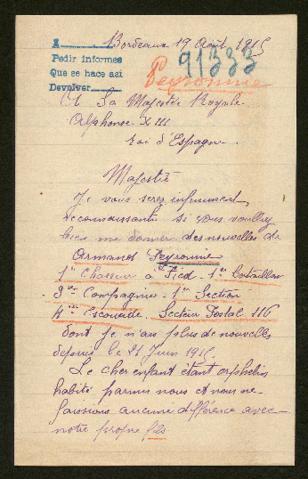 Bordeaux 19 Août 1915
A
Pedir informes
Que se hace así
Devolver
91333
Peyronnie
A Sa Majestée Royale
Alphonse XIII
roi d'Espagne
Majesté
Je vous serez infiniment
reconnaissante si vous vouliez
bien me donner des nouvelles de
Armand Peyronnie
1er Chasseur à Pied. 1er Bataillon
3me Compagnie. 1re Section
4me Escouade. Secteur Postal 116
dont je n'ai plus de nouvelle
depuis le 21 Juin 1915.
Le cher enfant étant orphelin
habité parmi nous et nous ne
faisions aucune différence avec
notre propre fils